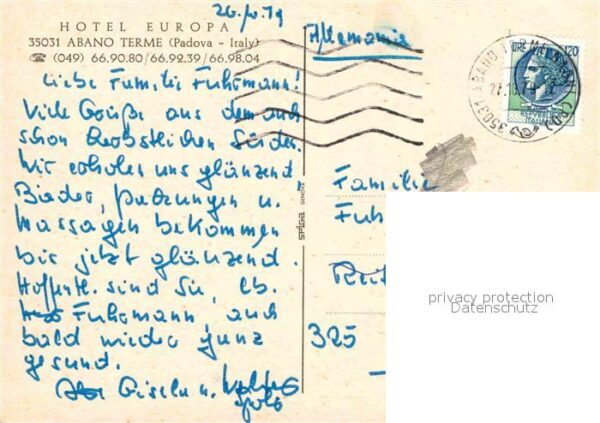 26.10.79
HOTEL EUROPA
35031 ABANO TERME (Padova - Italy)
☎ (049) 66.90.80/66.92.39/66.98.04
Allemania
LIRE 120
35031 ABANO TERME
Liebe Familie Fuhrmann!
Viele Grüße aus dem auch
schon herbstlichen Süden.
Wir erholen uns glänzend
Bäder, Packungen u.
Massagen bekommen
wir jetzt glänzend.
Hoffentl. sind Sie, lb.
Fuhrmann, auch
bald wieder ganz
gesund.
Gisela u.
Familie
Fuh
Reit
325
spiga GENOVA
privacy protection
Datenschutz